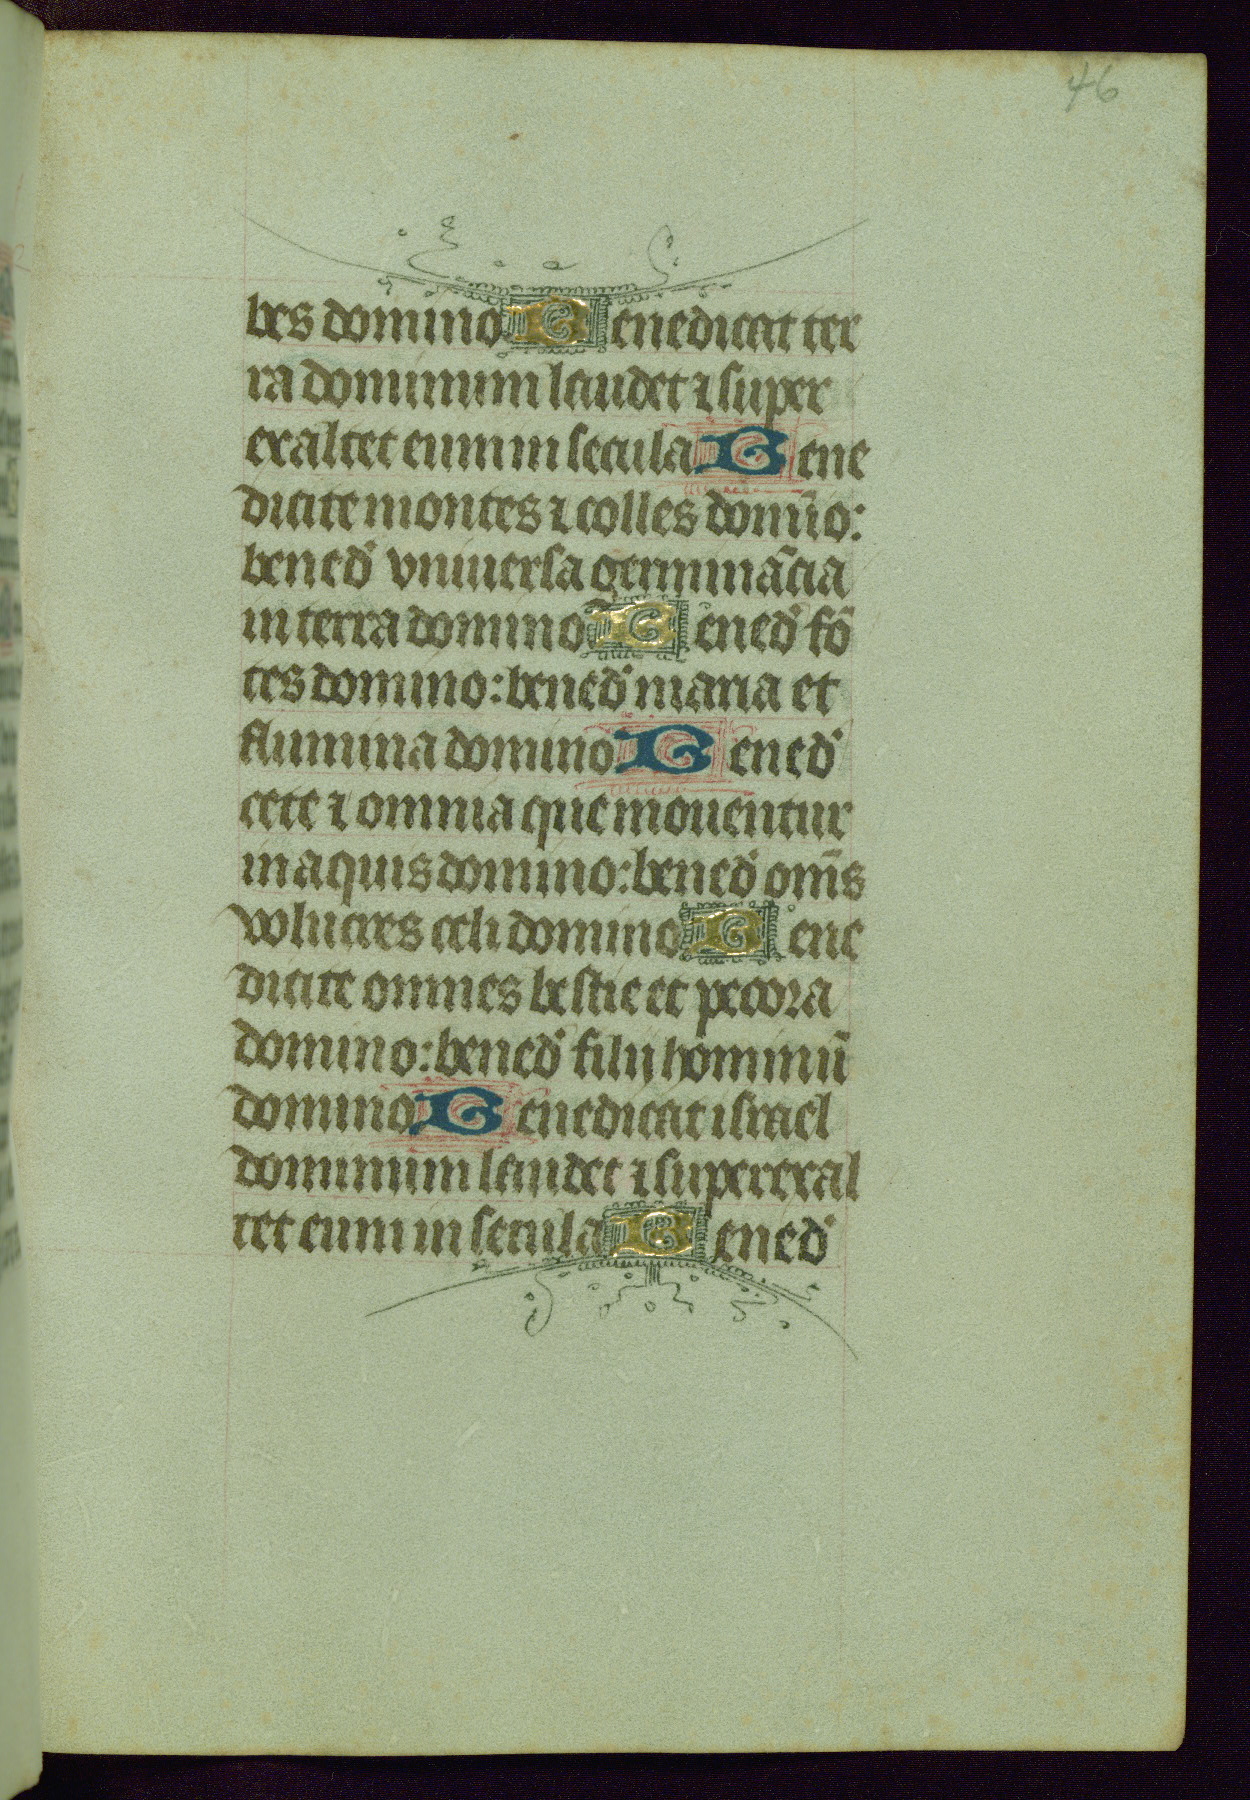 46
bes domino Benedicat ter
ra dominum laudet ⁊ super
exaltet eum in secula Bene
dicite montes ⁊ colles domīo:
bened̛ vniuersa germinācia
in terra domino Bened̛ fō
tes domino: bened̛ maria et
flumina domino Bened̛
cete ⁊ omnia que mouentur
in aquis domino: bened̛ om̄s
volucres celi domino Bene
dicite omnes bestie et pecora
domino: bened̛ filij hominū
domino Benedicat israel
dominum laudet ⁊ superexal
tet eum in secula Bened̛